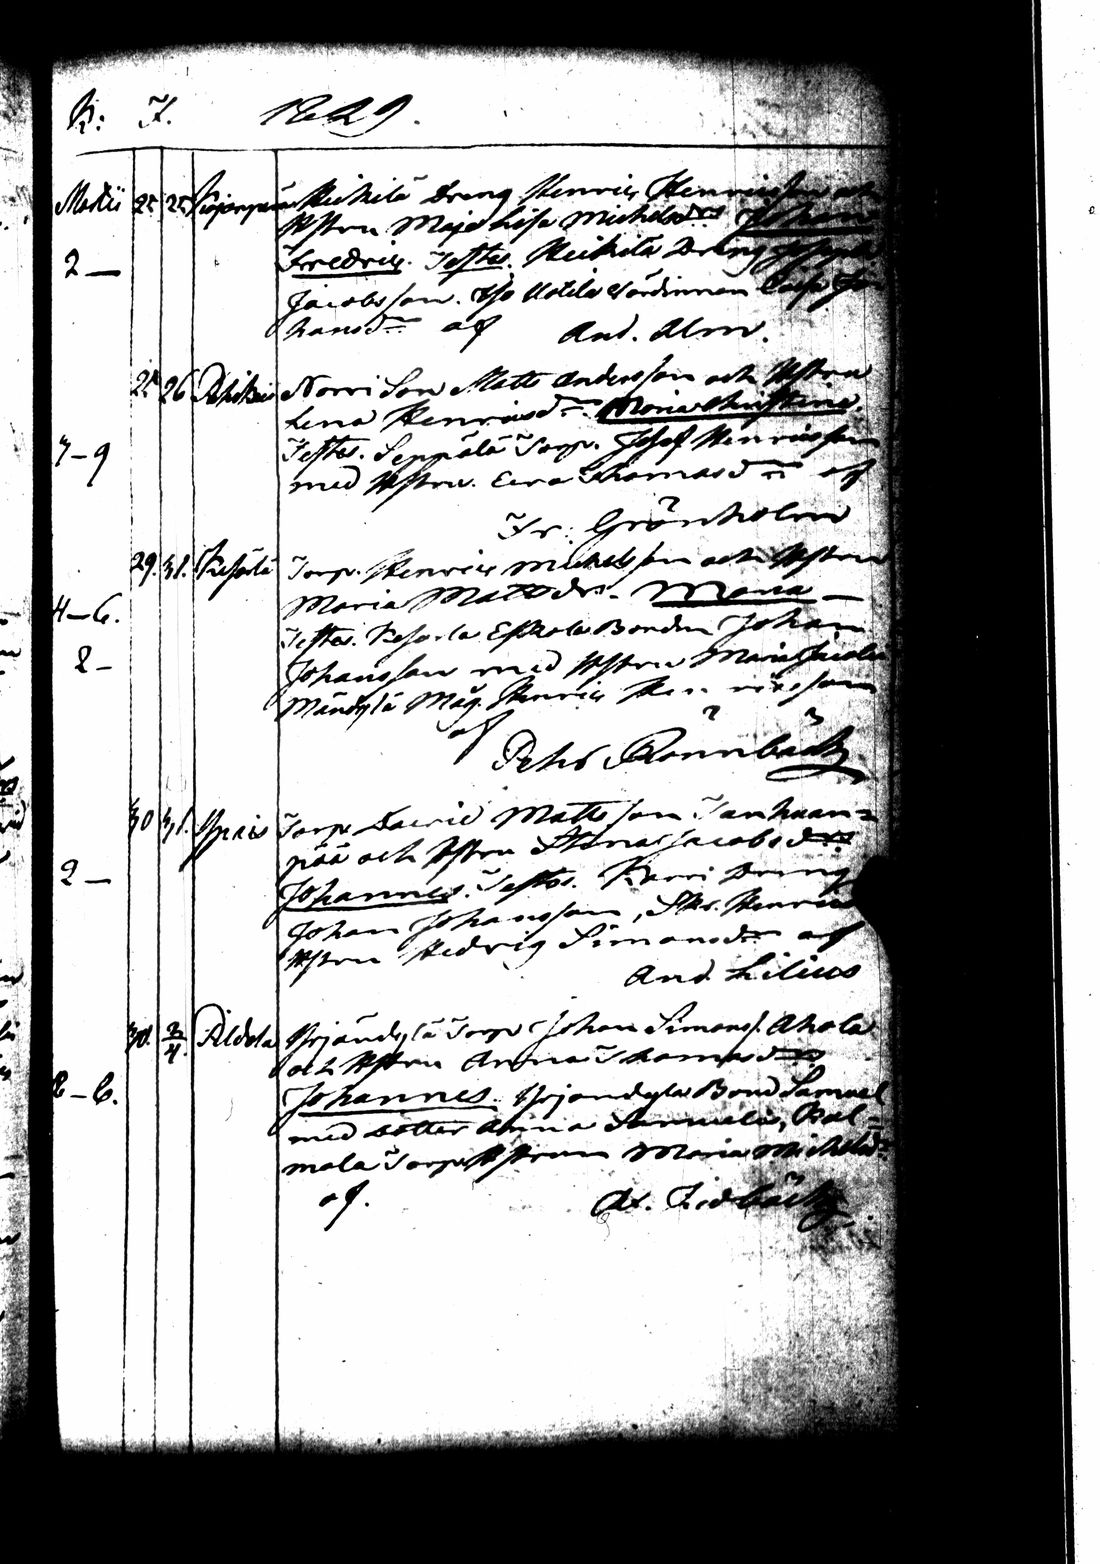 K: F. 1829.
Martii 22 25 Heikilä Dreng Henric Henricsson och
Hstru Maja Lisa Michelsdr Johan
2 — Fredric. Testes. Heikilä Dreng
Jacobsson. Värdinnan Caisa Jo
hansdr af And. Alm.
25 26 Norri Son Matts Andersson och Hstru
Lena Henricsdr Maria Christina.
7-9 Testes. Seppälä Torp. Josef Henricsson
med Hstru Eva Thomasdr af
Fr. Grönholm
29. 31. Torp. Henric Michelsson och Hstru
Maria Mattsdr. Maria —
4-6. Testes. Eskola Bonden Johan
8 - Johansson med Hstru Maria Jacobs
Mäg. Henric Henricsson
af Petr Rönnbäck
30 31. Ypäis Torp. David Mattsson Tanhuan=
pää och Hstru Stina Jacobsdr
2 — Johannes. Testes. Dreng
Johan Johansson, Henrics
Hstru Hedvig Simonsdr af
And. Lilius
30. 3/4. Yrjändylä Torp. Johan Simonss. Ahola
och Hstru Anna Thomasdr
2-6. Johannes. Yrjändylä Bond Samuel
med dotter Anna Samuels,
mala Torp. Hstrun Maria Michelsdr
af. Ax. Lidbäck